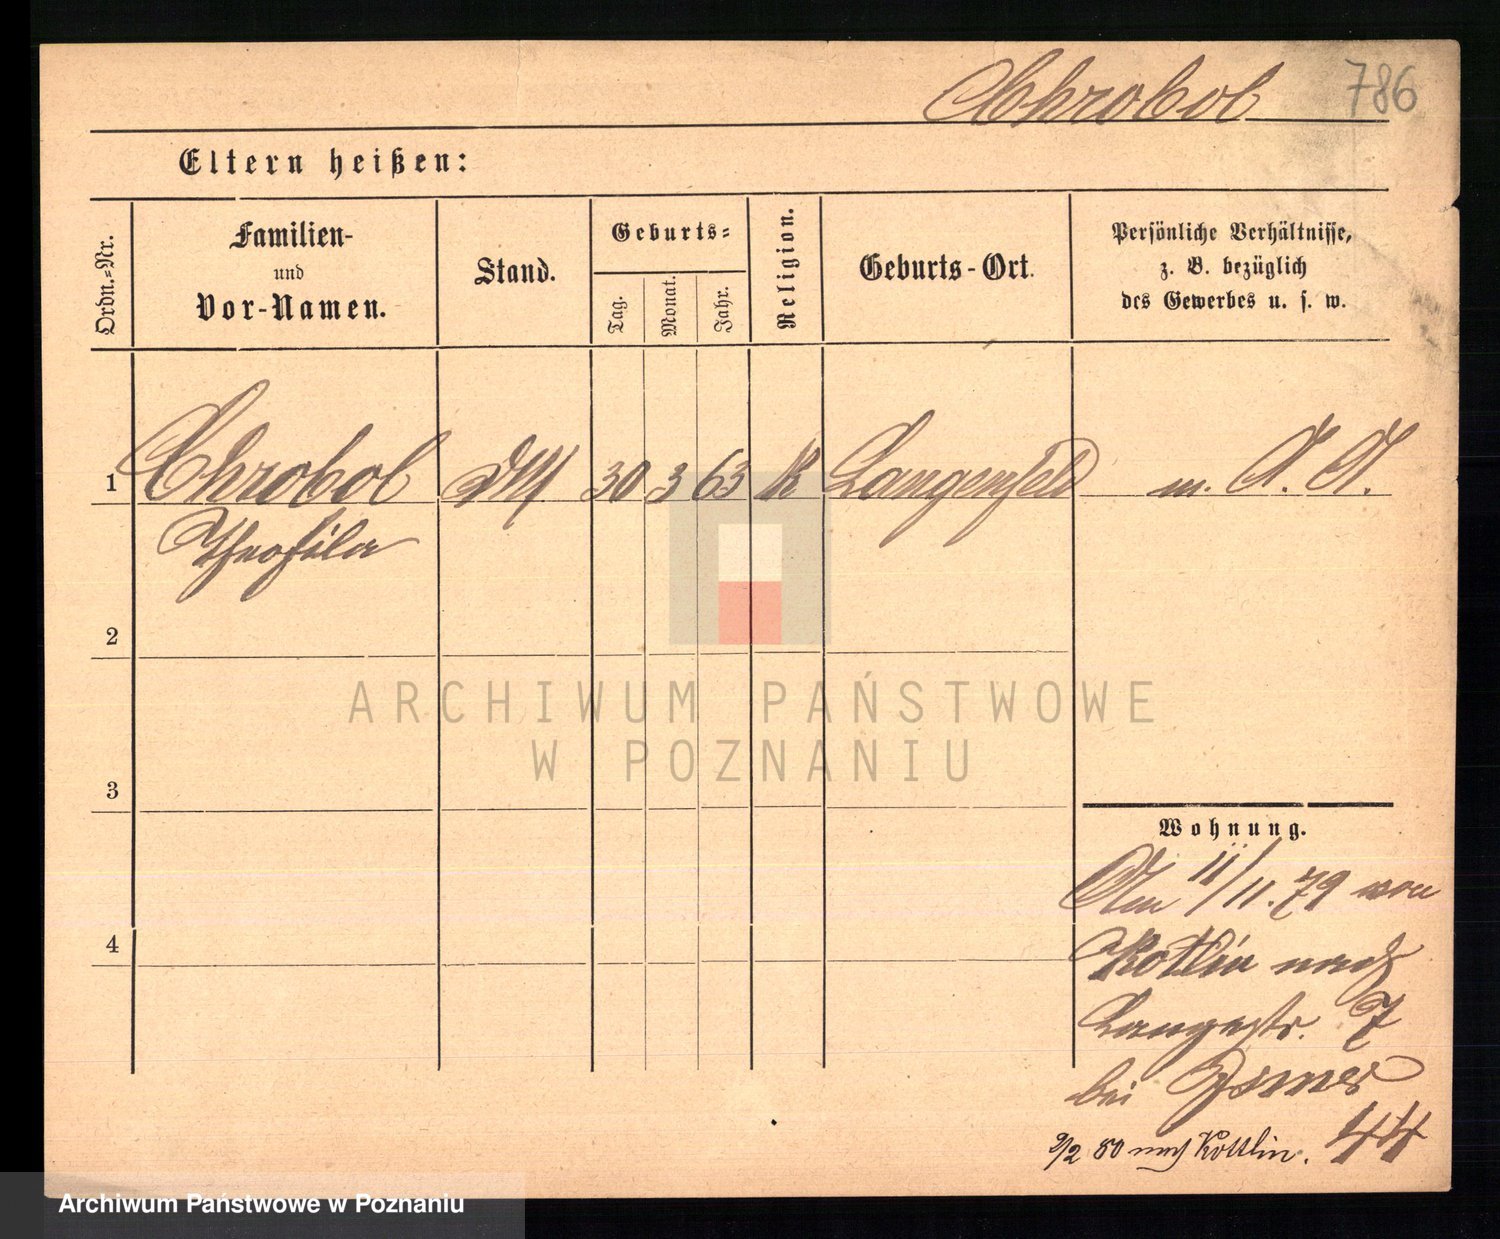 Chrobol 786
Eltern heißen:
Ordn.-Nr.
Familien-
und
Vor-Namen.
Stand.
Geburts-
Tag.
Monat.
Jahr.
Religion.
Geburts-Ort.
Persönliche Verhältnisse,
z. B. bezüglich
des Gewerbes u. s. w.
1 Chrobol DM 30 3 63 K Langenfeld m. A. A.
Theofila
2
3
4
Wohnung.
Am 11/11.79 von
Kottlin nach
Langestr. 7
bei
9/2 80 nach Kottlin. 44
ARCHIWUM PAŃSTWOWE
W POZNANIU
Archiwum Państwowe w Poznaniu